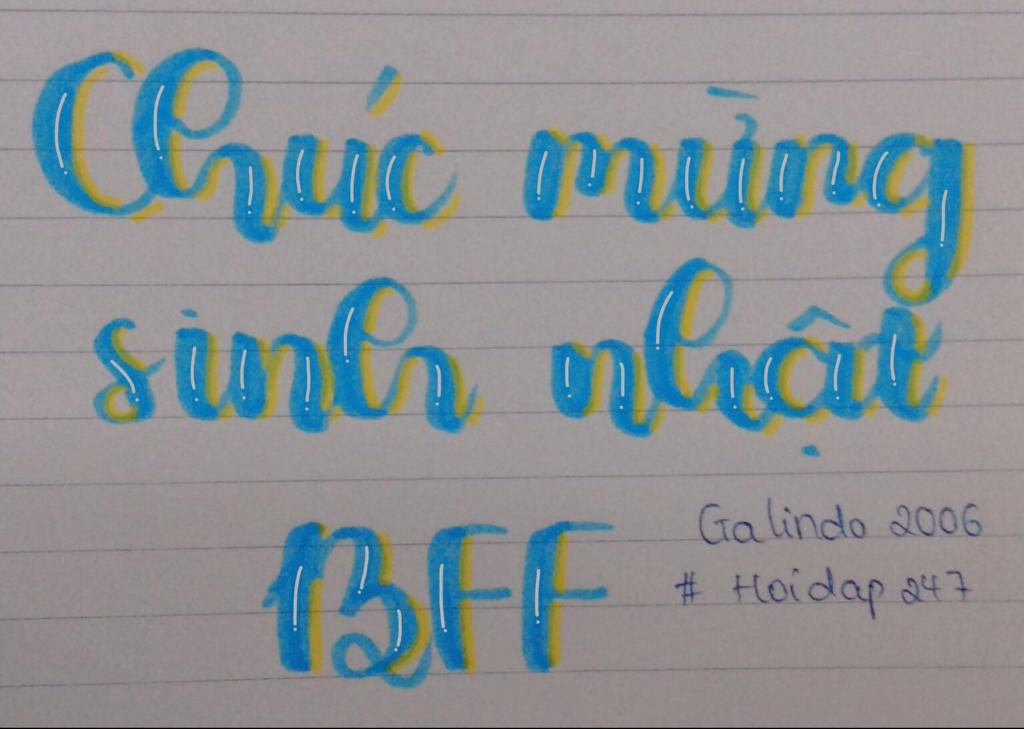 Chúc mừng
sinh nhật
BFF
Galindo 2006
# Hoidap 247